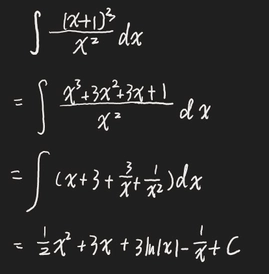 ∫ (x+1)³/x² dx
= ∫ (x³+3x²+3x+1)/x² dx
= ∫ (x+3+3/x+1/x²)dx
= 1/2 x² + 3x + 3ln|x| - 1/x + C